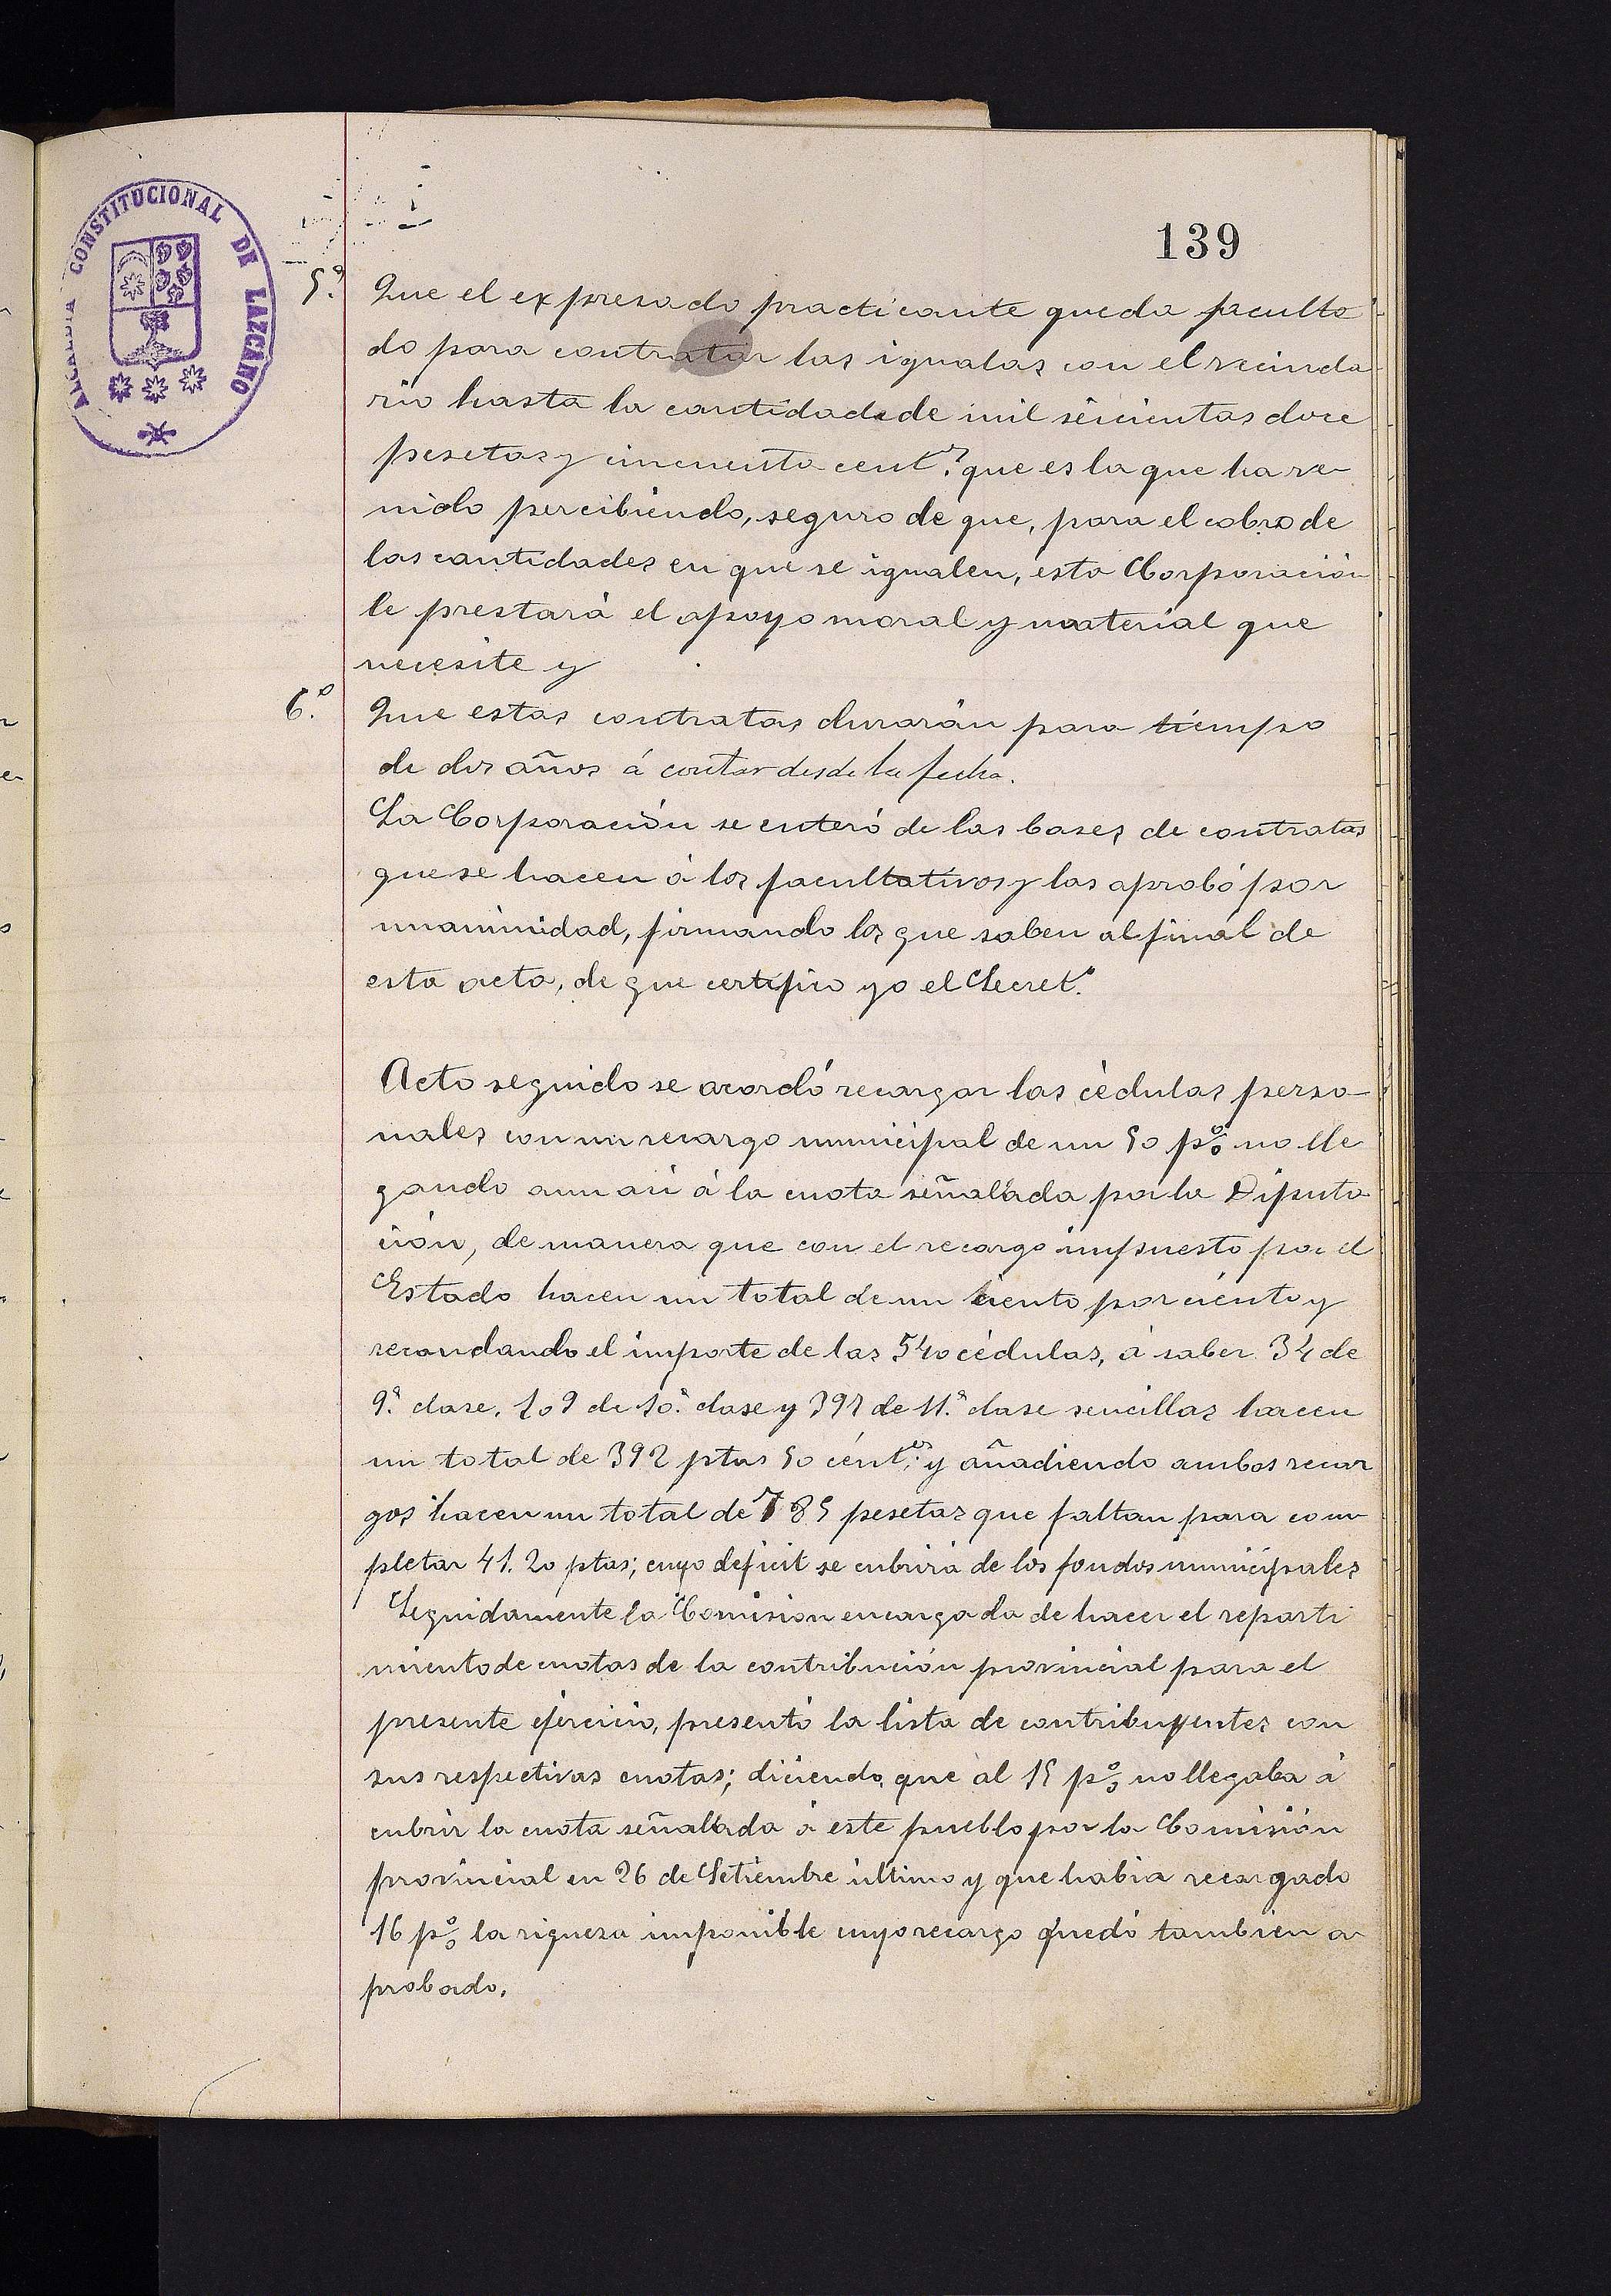 ALCALDIA CONSTITUCIONAL DE LAZCANO
139
5.º Que el expresado practicante queda faculta
do para contratar las igualas con el vecinda
rio hasta la cantidad de mil seicientas doce
pesetas y cincuenta cent.s que es la que ha ve-
nido percibiendo, seguro de que, para el cobro de
las cantidades en que se igualen, esta Corporación
le prestará el apoyo moral y material que
necesite y
6.º Que estas contratas durarán para tiempo
de dos años á contar desde la fecha.
La Corporación se enteró de las bases de contratas
que se hacen á los facultativos y las aprobó por
unanimidad, firmando los que saben al final de
esta acta, de que certifico yo el Secret.º
Acto seguido se acordó recargar las cédulas perso-
nales con un recargo municipal de un 50 p% no lle
gando aun asi á la cuota señalada por la Diputa
ción, de manera que con el recargo impuesto por el
Estado hacen un total de un ciento por ciento y
recaudando el importe de las 540 cédulas, á saber 34 de
9.ª clase, 109 de 10.ª clase y 397 de 11.ª clase sencillas hacen
un total de 392 ptas 50 cént.os y añadiendo ambos recar
gos hacen un total de 785 pesetas que faltan para com
pletar 41.20 ptas; cuyo déficit se cubrirá de los fondos municipales
Seguidamente la Comision encargada de hacer el reparti
miento de cuotas de la contribución provincial para el
presente ejercicio, presentó la lista de contribuyentes con
sus respectivas cuotas; diciendo, que al 15 p% no llegaba á
cubrir la cuota señalada á este pueblo por la Comisión
provincial en 26 de Setiembre último y que habia recargado
16 p% la riqueza imponible cuyo recargo quedó tambien a
probado.